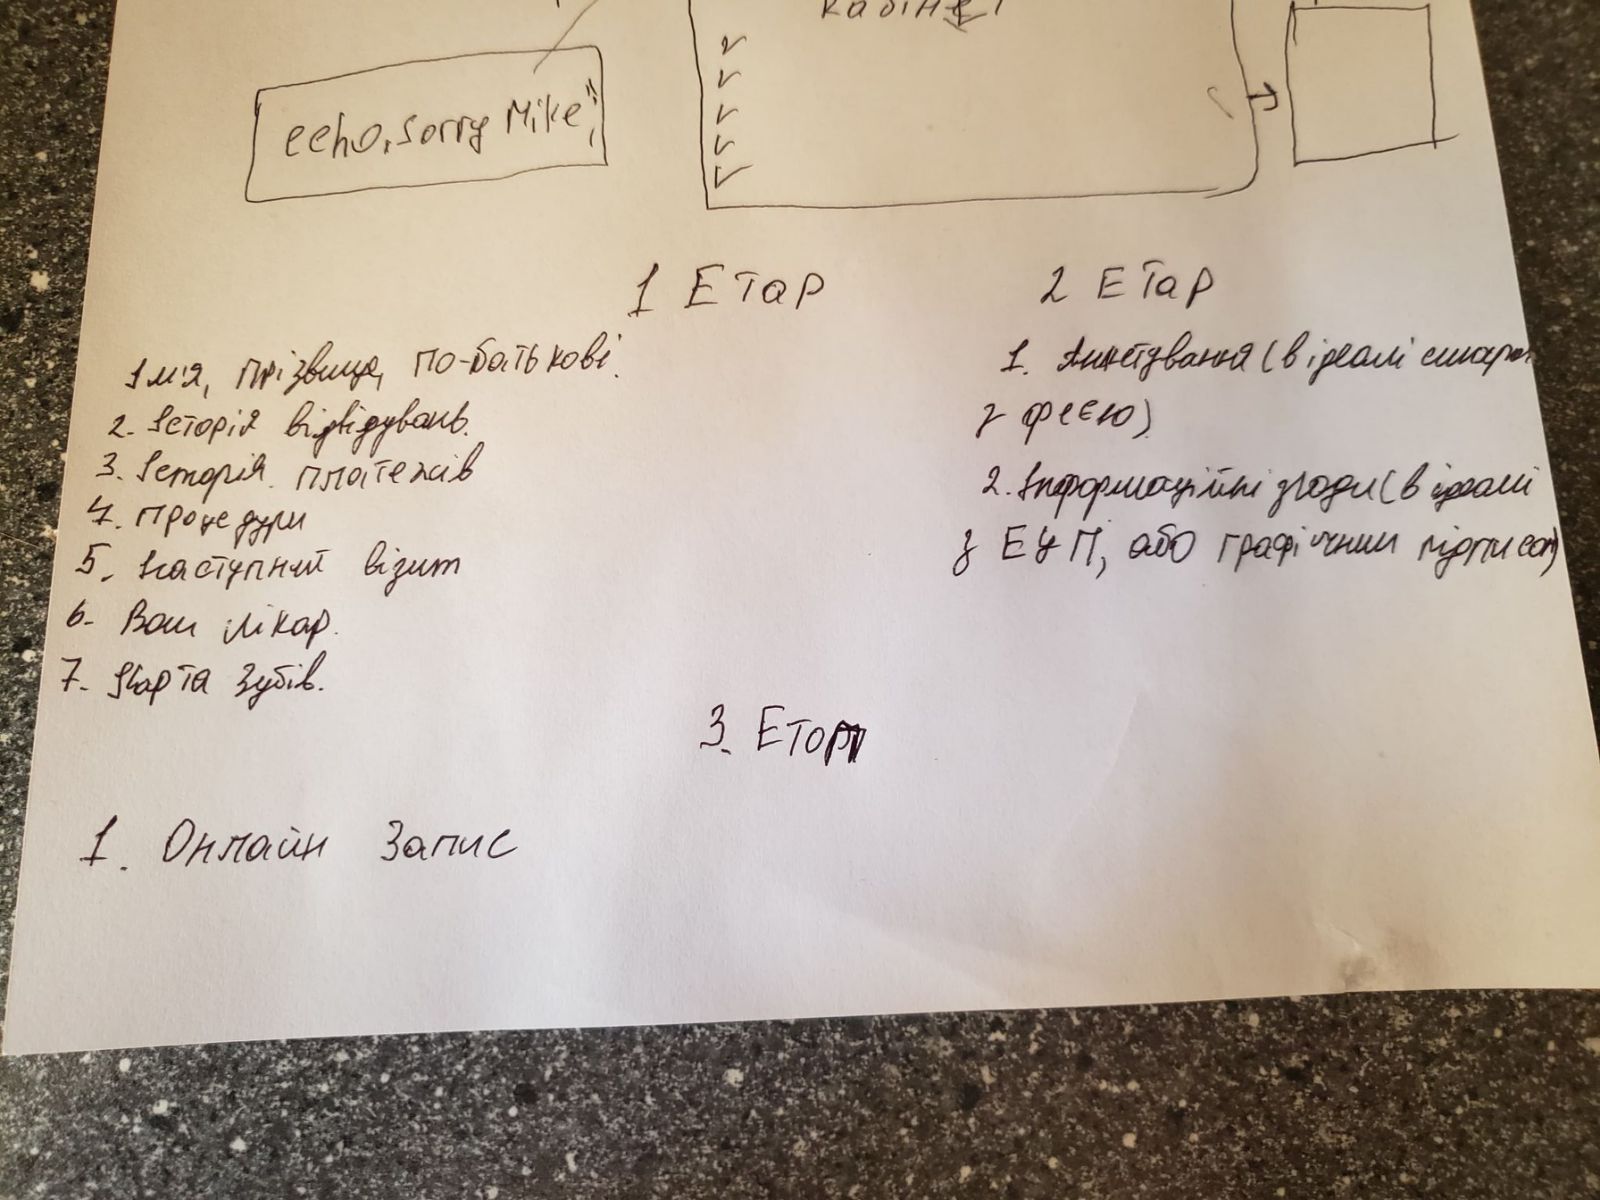 кабінет
echo, Sorry Mike";
1 Етар
Ім'я, прізвище, по-батькові.
2. Історія відвідувань.
3. Історія платежів
4. Процедури
5. Наступний візит
6. Ваш лікар.
7. Карта зубів.
2 Етар
1. Анкетування (в ідеалі
з феєю)
2. Інформаційні згоди (в ідеалі
з ЕЦП, або графічним підписом)
3. Етап
1. Онлайн Запис